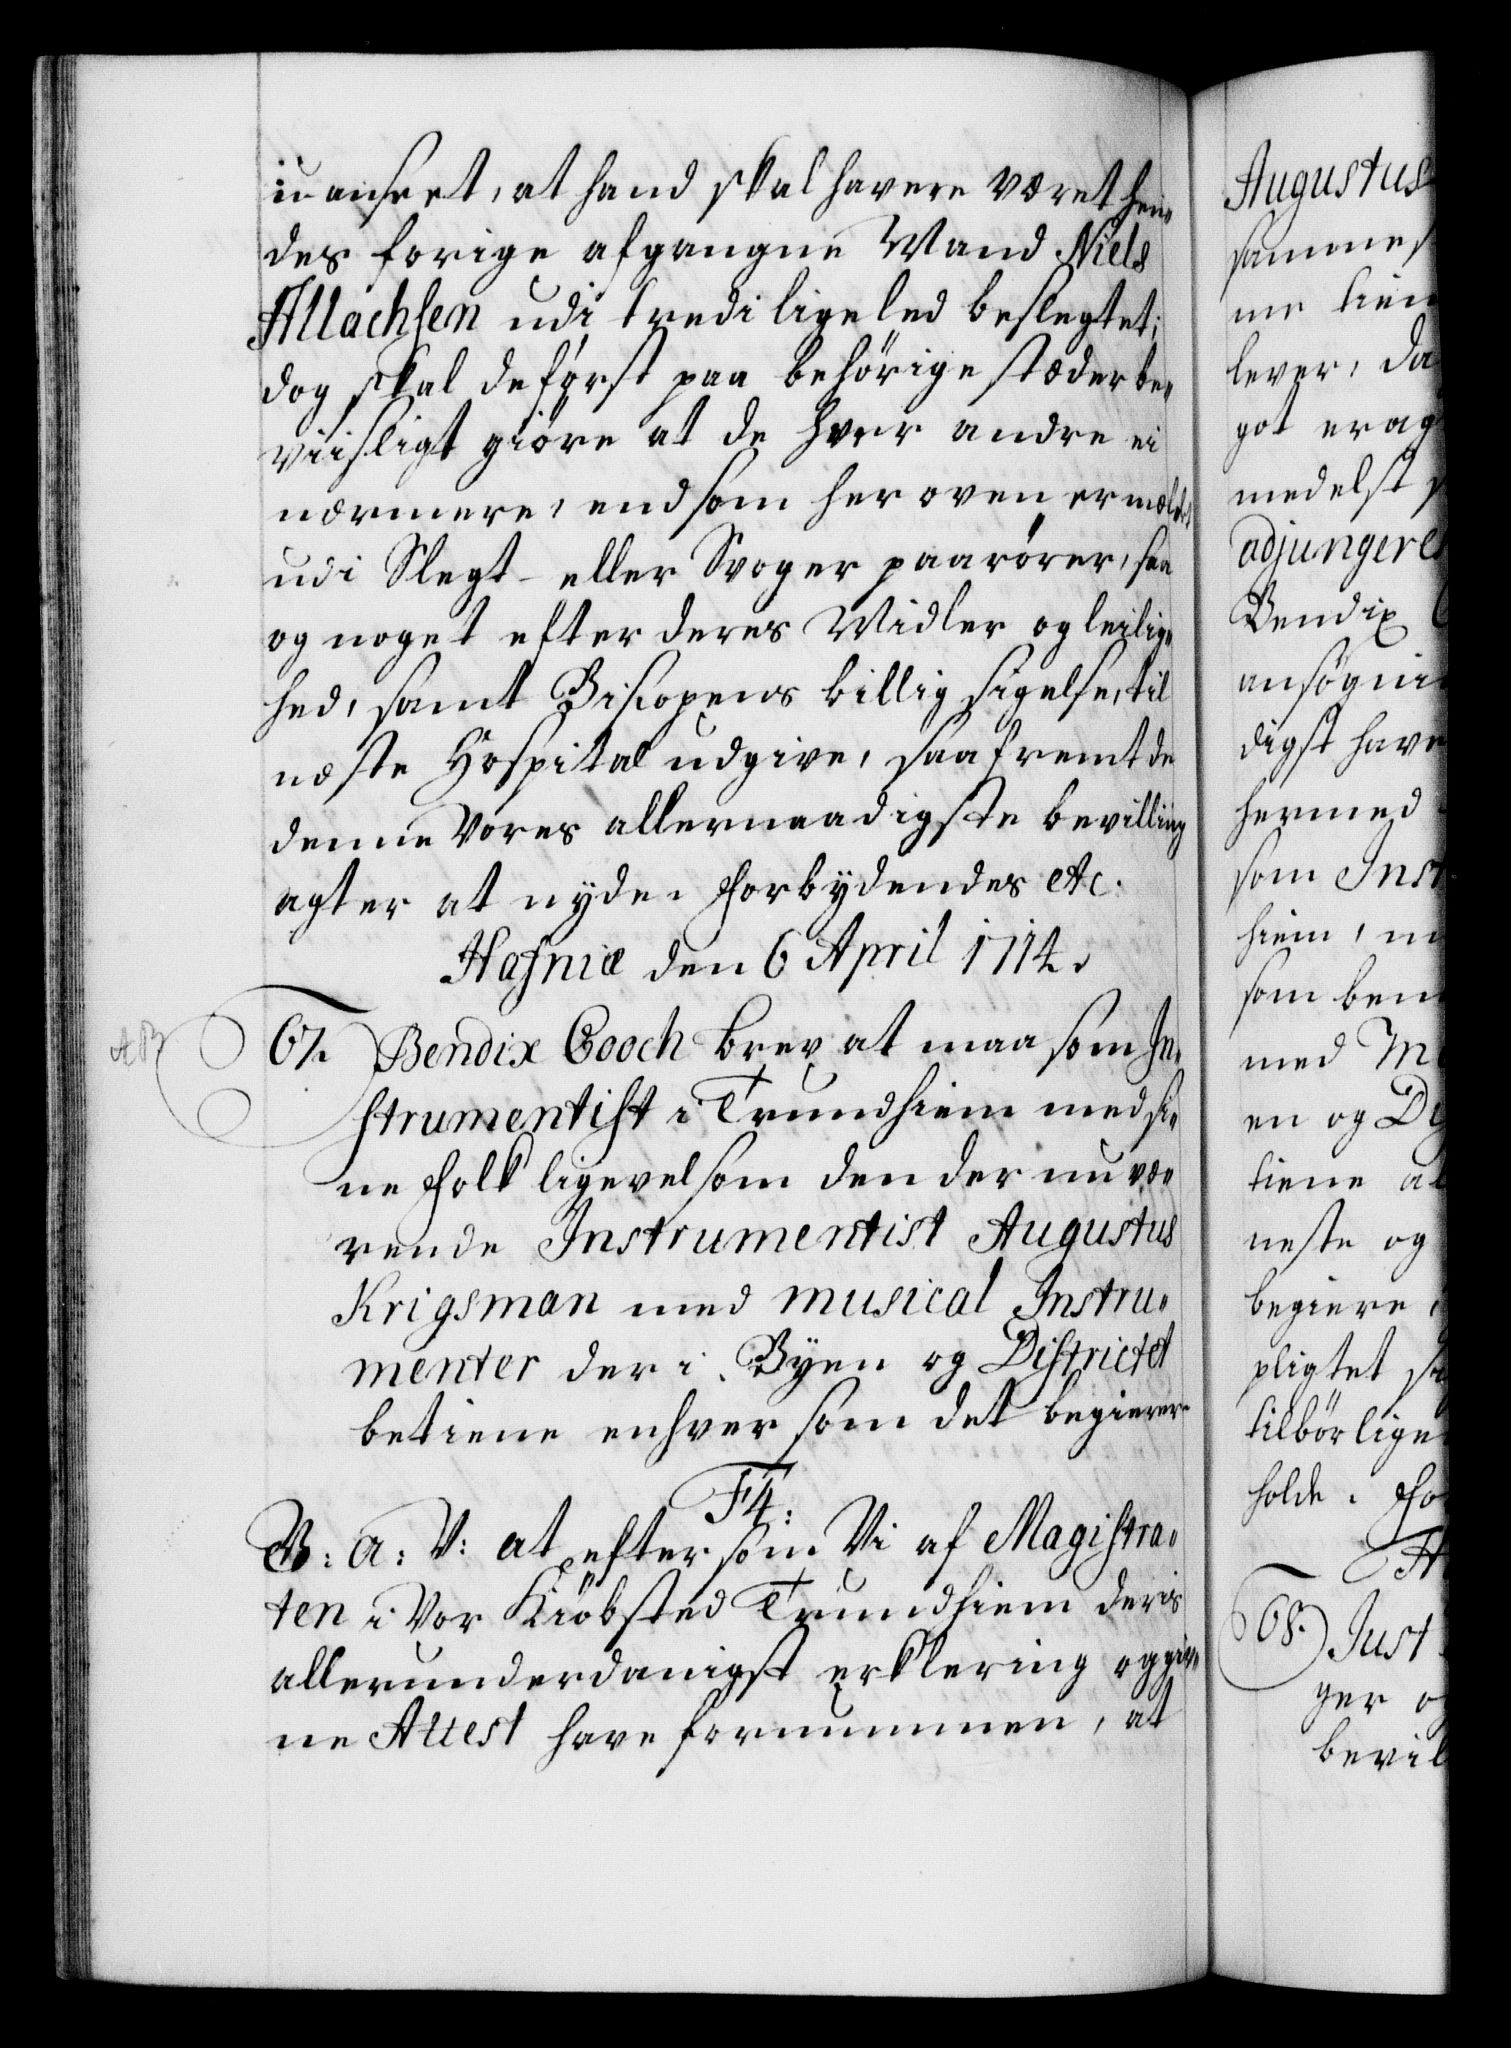 uanseet, at hand skal havere været hen„
des forige afgangne Mand Niels
Allachsen udi tredie ligeled beslegtet;
dog skal de først paa behörige stæder be„
viisligt giöre at de hver andre ei
nærmere, end som her oven er meldt
udi Slegt- eller Svogerpaarörer, saa
og noget efter deres Midler og leilig„
hed, samt Biscopens billig sigelse, til
næste Hospital udgive, saafremt de
denne Vores allernaadigste bevilling
agter at nyde. Forbydendes etc.
Hafniæ den 6 April 1714.
67. Bendix Cooch brev at maa som In„
strumentist i Trundhiem med si„
ne Folk ligevel som den der nu væ„
rende Instrumentist Augustus
Krigsman med musical Instru„
menter der i Byen og Districtet
betiene enhver som det begierer
F4:
G: a: V: at eftersom Vi af Magistra„
ten i Vor Kiöbsted Trundhiem deris
allerunderdanigst erklering og giv„
ne Attest have fornummen, at
Augustus
samme
me tien
lever, da
got erag
medelst
adjungere
Bendix
ansögni
digst have
hermed
som Inst
hiem, m
som bem
med M
en og D
tiene al
neste og
begiere,
pligtet sa
tilbörlige
holde. Fo
H
68. Just
ger o
bevil